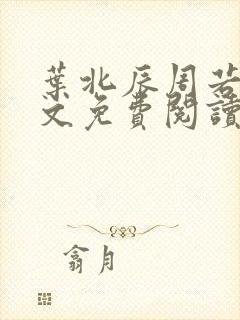 葉北辰周若
文免費閱讀
翕月